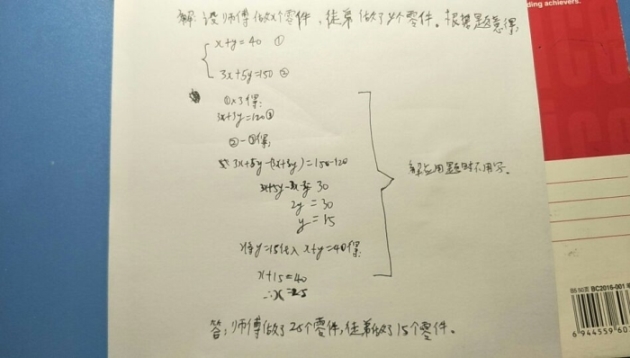 解:设师傅做x个零件,徒弟做了y个零件。根据题意得:
x+y=40 ①
3x+5y=150 ②
①×3得:
3x+3y=120③
②-③得:
3x+5y-(3x+3y)=150-120
3x+5y-3x-3y=30
2y=30
y=15
将y=15代入x+y=40得:
x+15=40
∴x=25
解应用题时不用写。
答:师傅做了25个零件,徒弟做了15个零件。
ding achievers.
BC2016-001
6 944559 60